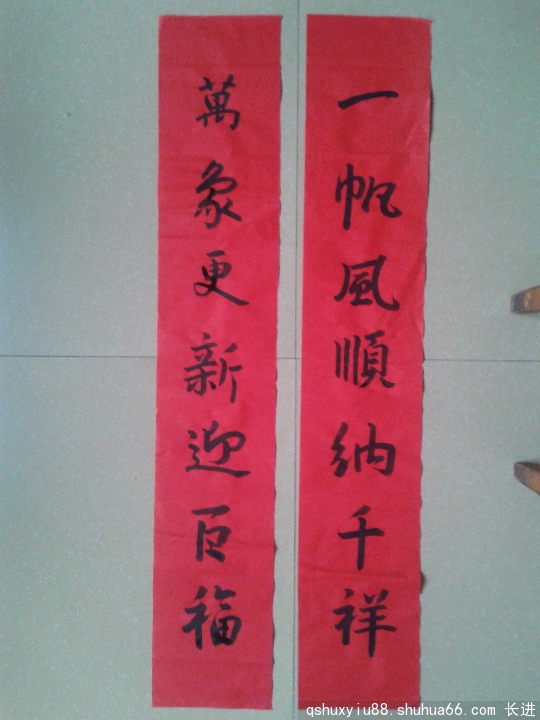 一帆風順纳千祥
萬象更新迎百福
qshuxyiu88.shuhua66.com 长进